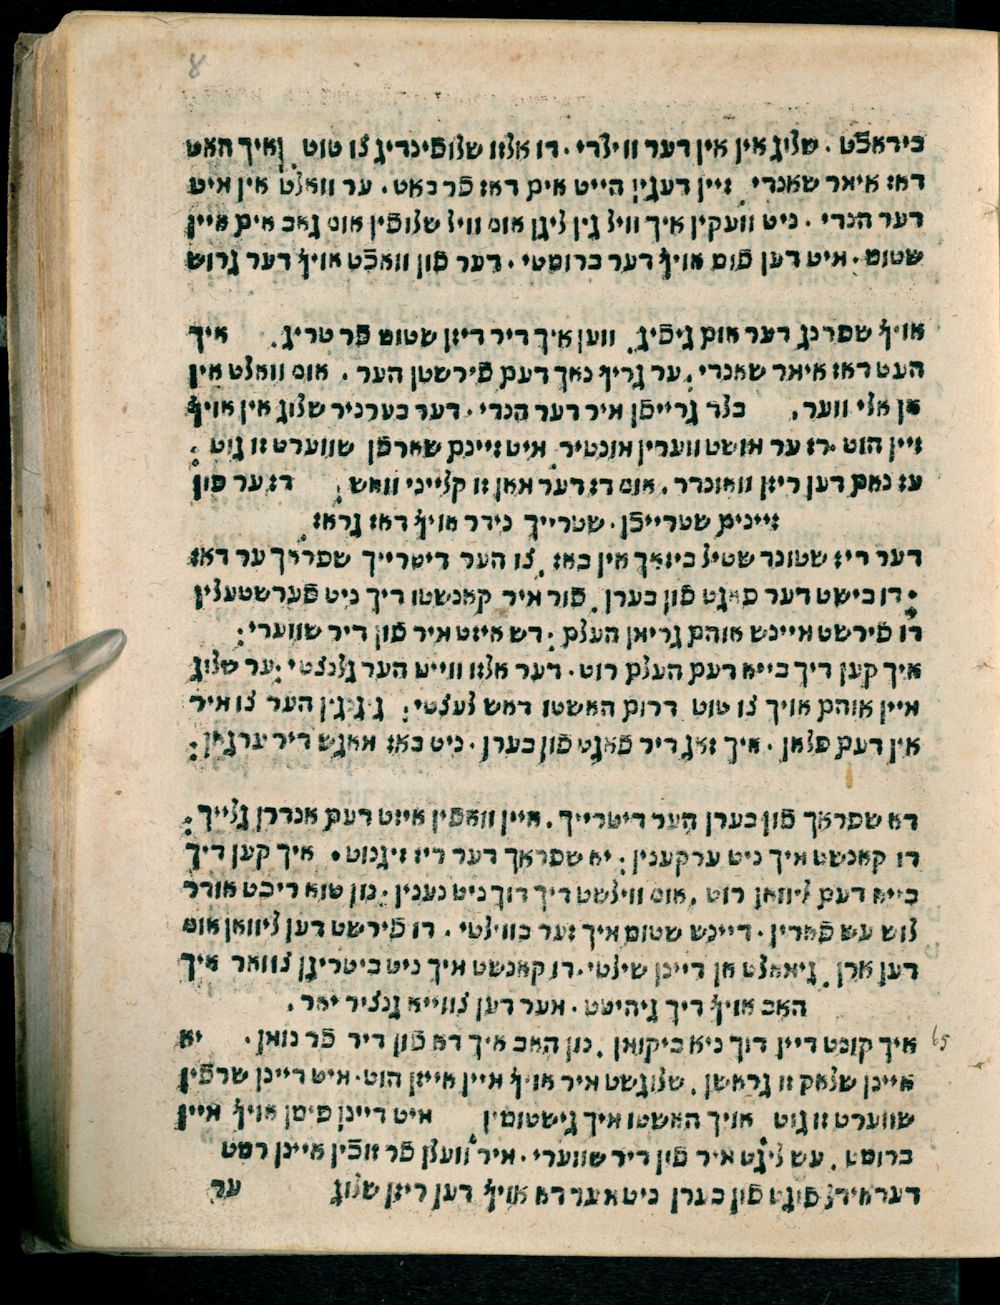 8
ביראכֿט . שלוג אין אין דער ווילדי . דו אלזו שלופֿינדיג צו טוט איך האט
דאז איאר שאנדי זיין דעגין הייט אים דאז פֿר באט . ער וואלט אין מיט
דער הנדי . ניט וועקין איך וויל גין ליגן אונ וויל שלופֿין אונ גאב אים איין
שטוס . מיט דען פֿוס אויף דער ברוסטי . דער פֿון וואכֿט אויף דער גרוש
אויף שפרנג דער אום גיפֿיג ווען איך דיר דיזן שטוס פֿר טריג . איך
העט דאז איאר שאנדי . ער גריף נאך דעם פֿירשטן הער . אונ וואלט אין
אן אלי ווער . בלד גרייפֿן איר דער הנדי . דער בערניר שלוג אין אויף
זיין הוט . דז ער מושט ווערין מונטיר מיט זיינם שארפֿן שווערט זו גוט :
עז נאם דען ריזן וואונדר . אונ דז דער מאן זו קלייני וואש : דז ער פֿון
זיינים שטרייכֿן . שטרייך נידר אויף דאז גראז :
דער ריז שטונד שטיל ביזאך אין באז . צו הער דיטרייך שפראך ער דאז
דו בישט דער פֿאגט פֿון בערן . פֿור מיר קאנשטו דיך ניט פֿערשטעלין
דו פֿירשט איינש אוהם גריאן העלם : דש אייזט איר פֿון דיר שווערי :
איך קען דיך בייא דעם העלם רוט . דער אלזו ווייט הער גלנצטי : ער שלוג
איין אוהם אויך צו טוט דרום האשטו דאש לעצטי : גיגיגין הער צו מיר
אין דעם פלאן . איך זאג דיר פֿאגט פֿון בערן . ניט באז מאגש דיר ערגאן :
דא שפראך פֿון בערן הער דיטרייך . איין וואפֿין אייזט דעם אנדרן גלייך :
דו קאנשט איך ניט ערקענין : יא שפראך דער ריז זיגנוט . איך קען דיך
בייא דעם ליוואן רוט . אונ ווילשט דיך דוך ניט נענין : נון טוא ריכט אודר
לוש עש פֿארין . דיינש שטוס איך זער בווילטי . דו פֿירשט דען ליוואן אונ
דען ארן גיאאלט אן דיינן שילטי . דו קאנשט איך ניט ביטריגן צוואר איך
האב אויף דיך גיהיטט . מער דען צווייא גנציר יאר .
איך קומט דיין דוך ניא ביקומן . נון האב איך דא פֿון דיר פֿר נומן . יא 65
איינן שלאק זו גראשן . שלוגשט איר אויף איין אייזן הוט . מיט דיינן שרפֿין
שווערט זו גוט אויך האשטו איך גישטוסין מיט דיינן פֿיסן אויף איין
ברוסט . עש ליגט איר פֿין דיר שווערי . איר וועלן פֿר זוכֿין איינן רסט
דער אידל פֿוגט פֿון בערן ניט אער דא אויף דען ריזן שלוג ער